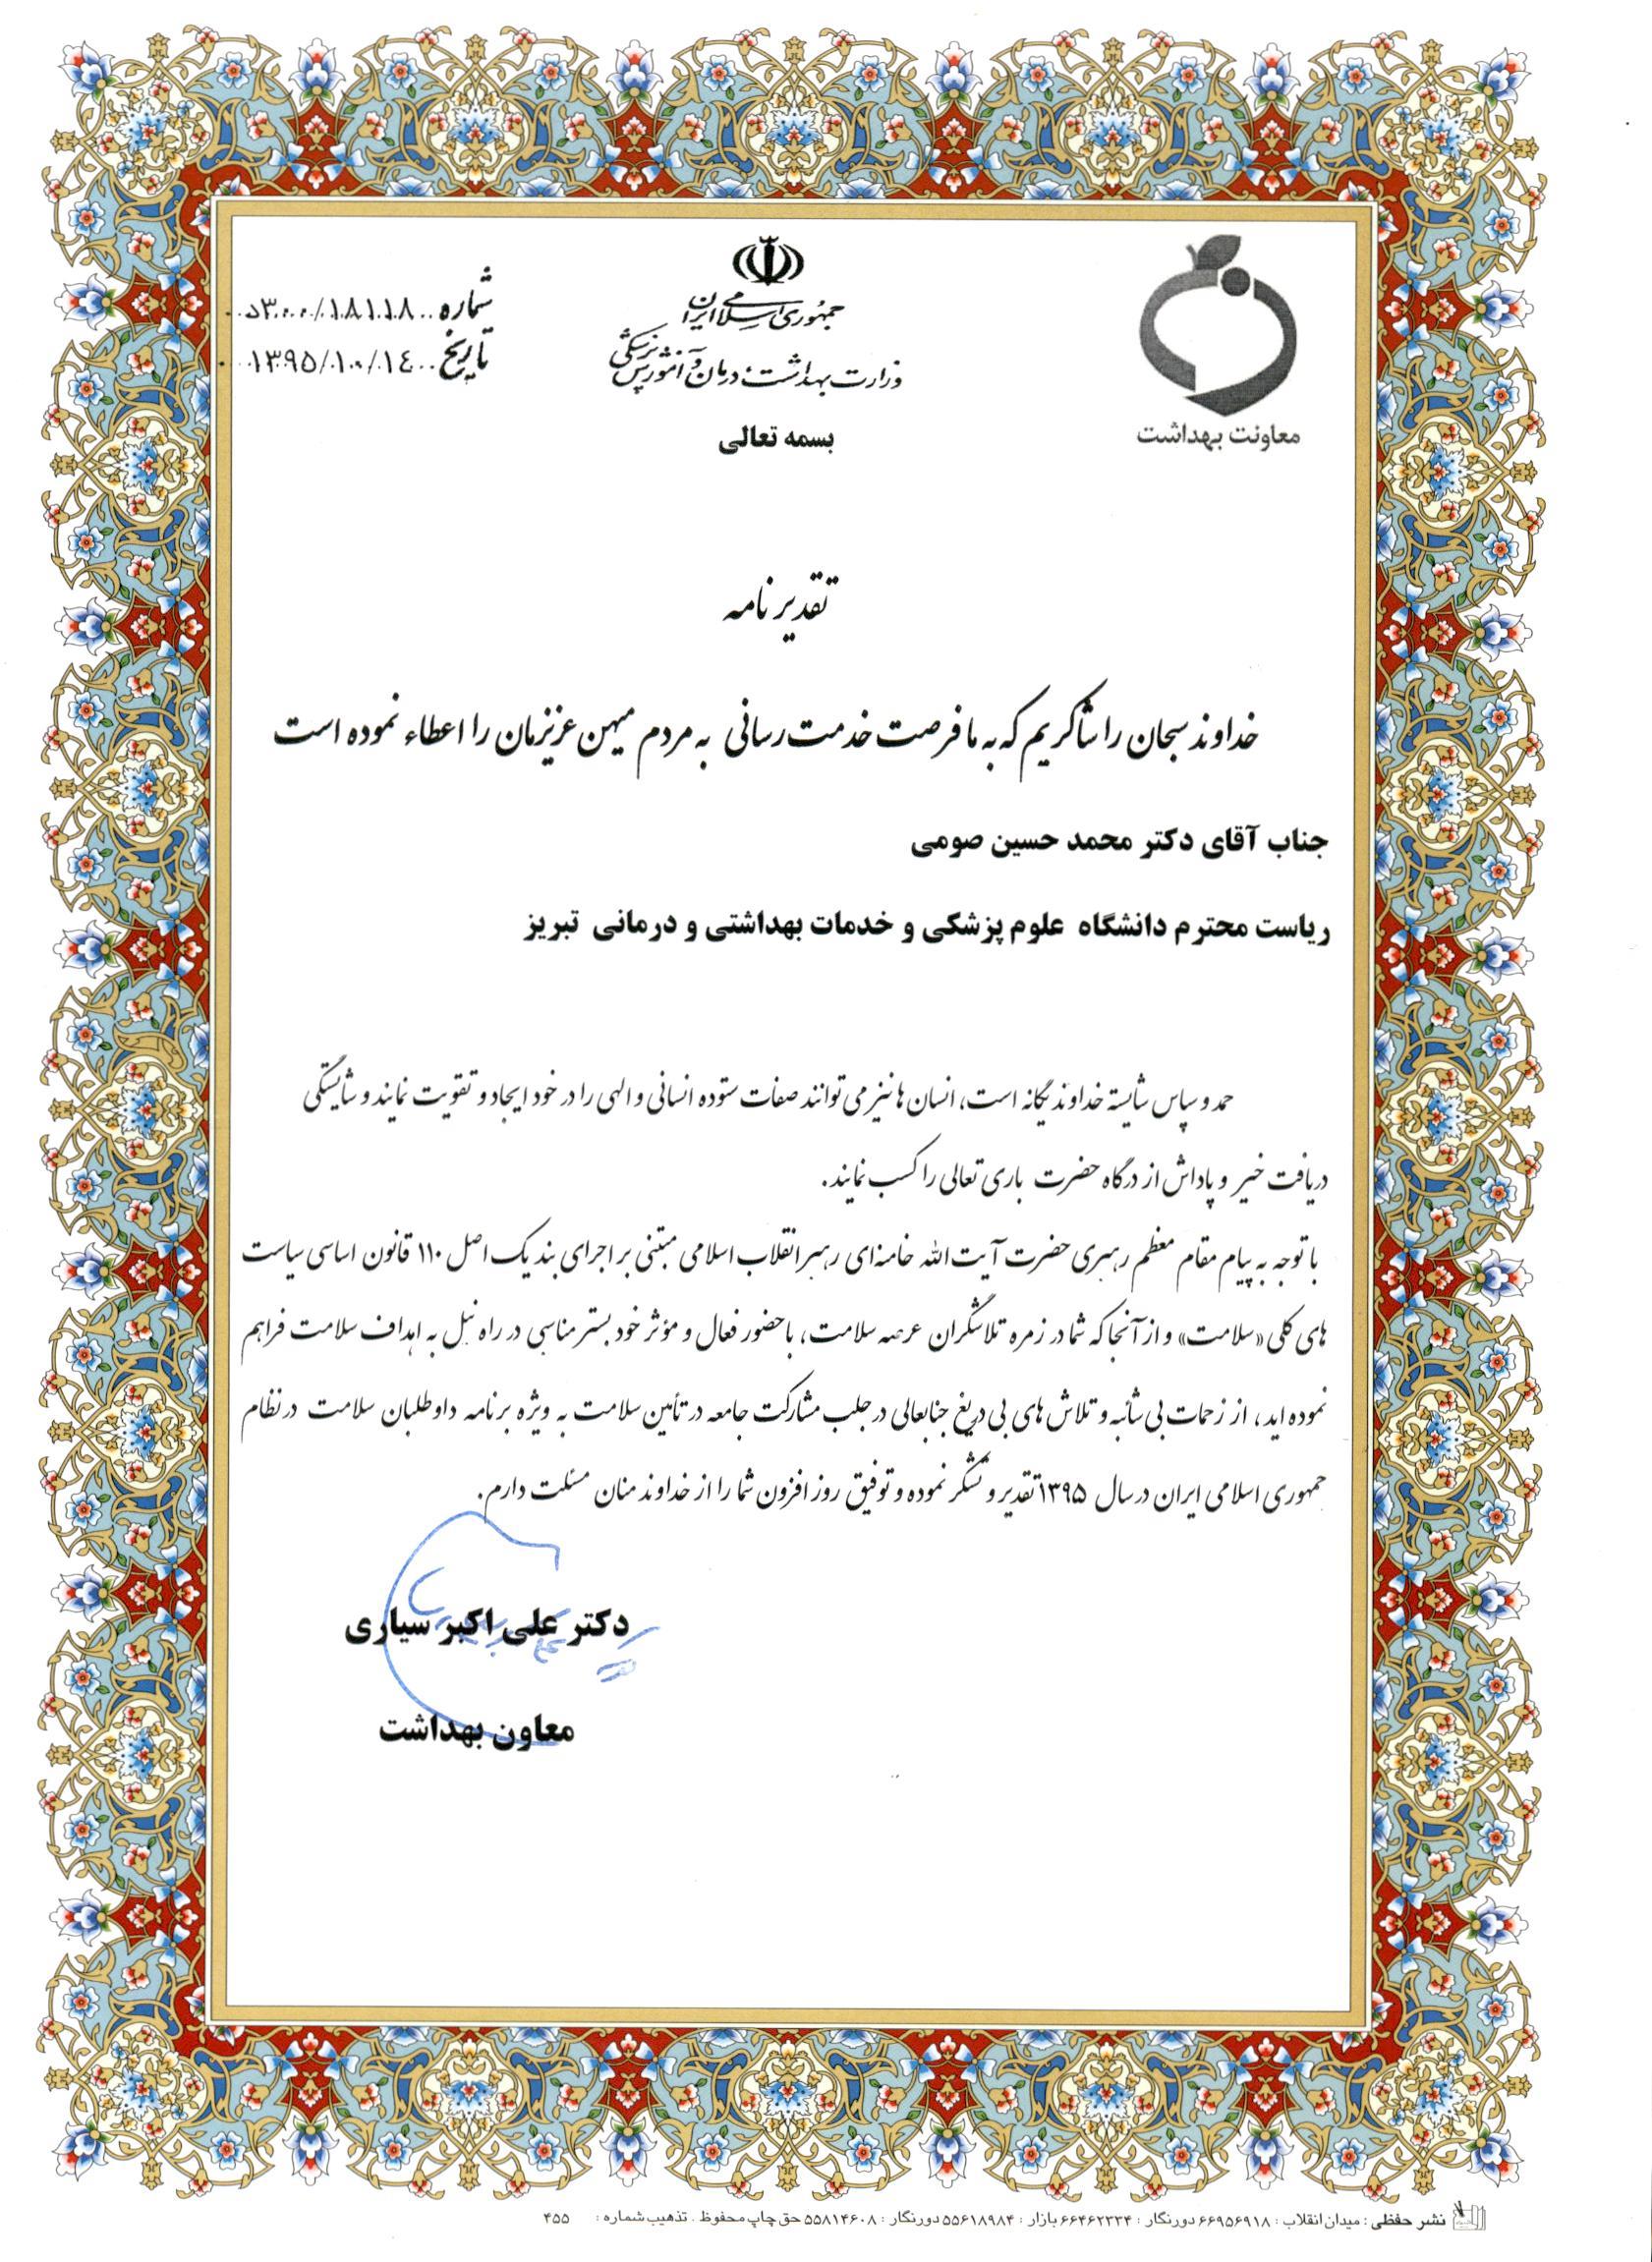 معاونت بهداشت
جمهوری اسلامی ایران
وزارت بهداشت، درمان و آموزش پزشکی
بسمه تعالی
شماره ۵۳۰۰/۱۸۱۱۸
تاریخ ۱۳۹۵/۱۰/۱٤
تقدیر نامه
خداوند سبحان را شاکریم که به ما فرصت خدمت رسانی به مردم میهن عزیزمان را اعطاء نموده است
جناب آقای دکتر محمد حسین صومی
ریاست محترم دانشگاه علوم پزشکی و خدمات بهداشتی و درمانی تبریز
حمد و سپاس شایسته خداوند یگانه است، انسان ها نیز می توانند صفات ستوده انسانی و الهی را در خود ایجاد و تقویت نمایند و شایستگی
دریافت خیر و پاداش از درگاه حضرت باری تعالی را کسب نمایند.
با توجه به پیام مقام معظم رهبری حضرت آیت الله خامنه‌ای رهبر انقلاب اسلامی مبتنی بر اجرای بند یک اصل ۱۱۰ قانون اساسی سیاست
های کلی «سلامت» و از آنجا که شما در زمره تلاشگران عرصه سلامت، با حضور فعال و مؤثر خود بستر مناسبی در راه نیل به اهداف سلامت فراهم
نموده اید، از زحمات بی شائبه و تلاش های بی دریغ جنابعالی در جلب مشارکت جامعه در تأمین سلامت به ویژه برنامه داوطلبان سلامت در نظام
جمهوری اسلامی ایران در سال ۱۳۹۵ تقدیر و تشکر نموده و توفیق روز افزون شما را از خداوند منان مسئلت دارم.
دکتر علی اکبر سیاری
معاون بهداشت
نشر حفظی : میدان انقلاب : ۶۶۹۵۶۹۱۸ دورنگار : ۶۶۴۶۲۳۳۴ بازار : ۵۵۶۱۸۹۸۴ دورنگار : ۵۵۸۱۴۶۰۸ حق چاپ محفوظ . تذهیب شماره : ۴۵۵